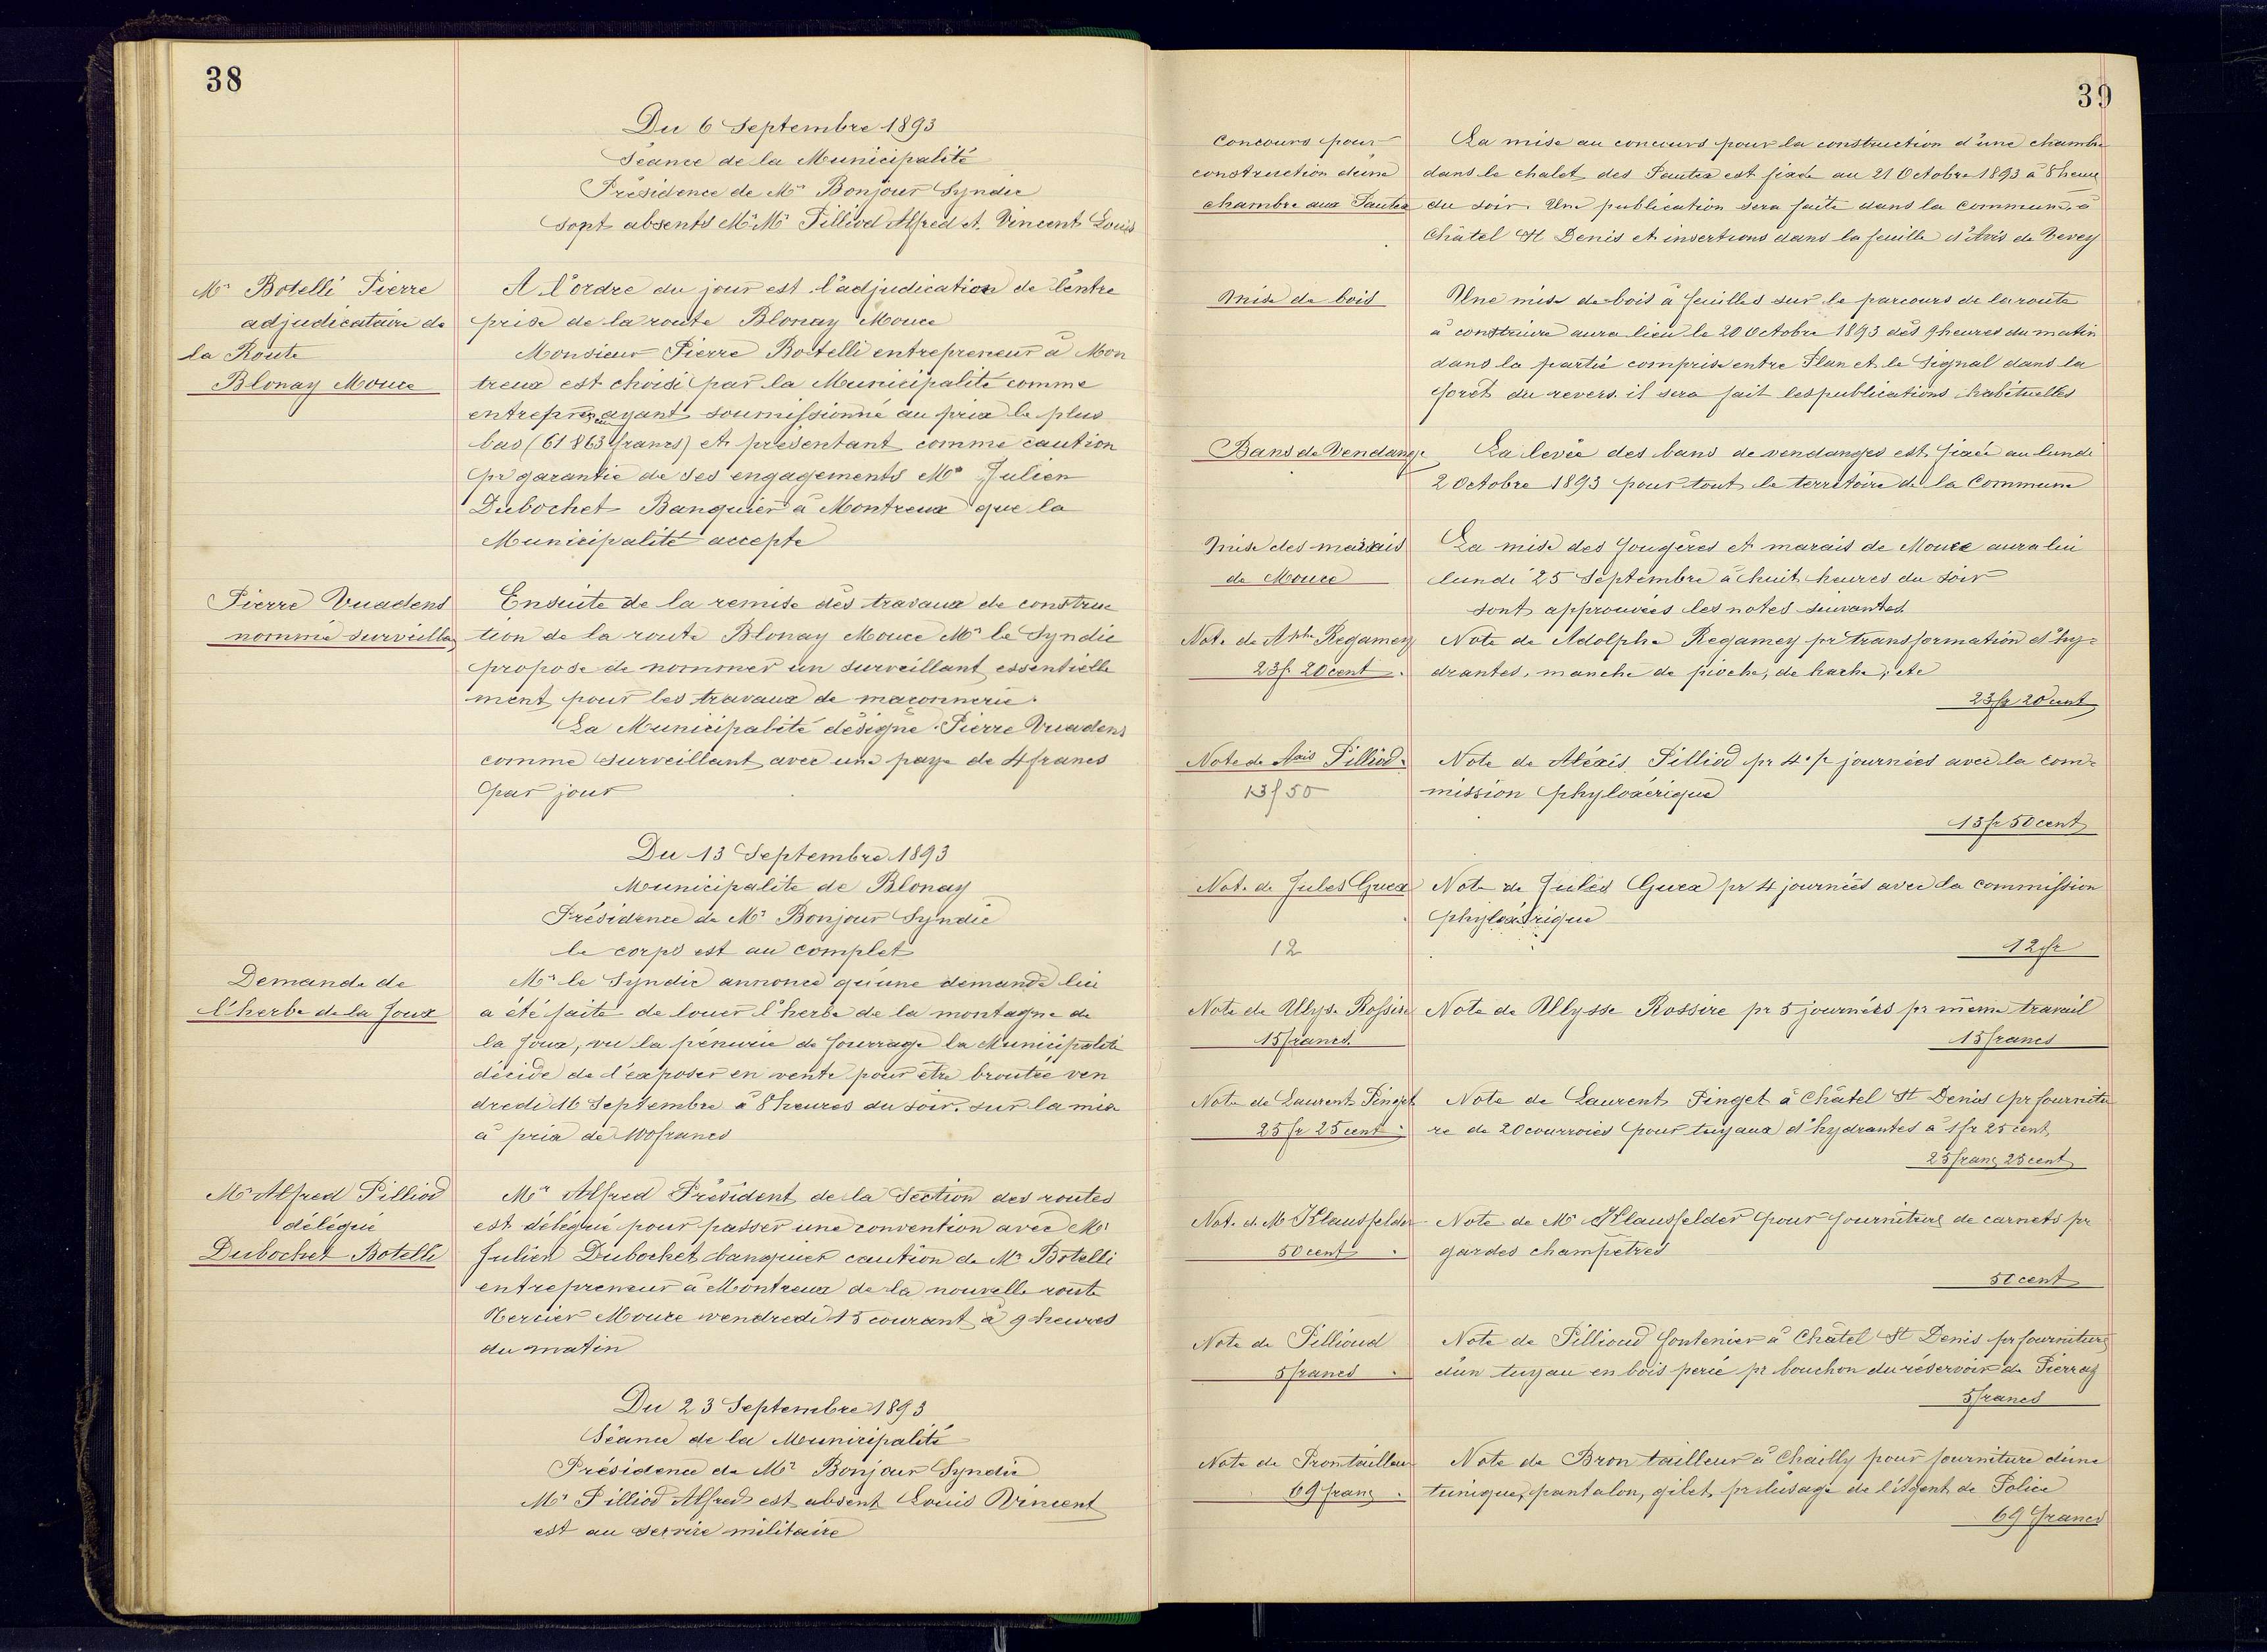 38
Du 6 Septembre 1893
Séance de la Municipalité
Présidence de Mr Bonjour Syndic
sont absents Mr Mr Pilliod Alfred et Vincent Louis
Mr Botelli Pierre
adjudicataire de
la Route
Blonay Mouce
A l'ordre du jour est l'adjudication de l'entre
prise de la route Blonay Mouce
Monsieur Pierre Botelli entrepreneur à Mon
treux est choisi par la Municipalité comme
entrepreneur ayant soumissionné au prix le plus
bas (61 863 francs) et présentant comme caution
pr garantie de ses engagements Mr Julien
Dubochet Banquier à Montreux que la
Municipalité accepte
Pierre Vuadens
nommé surveillant
Ensuite de la remise des travaux de construc
tion de la route Blonay Mouce Mr le Syndic
propose de nommer un surveillant essentielle
ment pour les travaux de maçonnerie.
La Municipalité désigne Pierre Vuadens
comme surveillant avec une paye de 4 francs
par jour
Du 13 Septembre 1893
Municipalité de Blonay
Présidence de Mr Bonjour Syndic
le corps est au complet
Demande de
l'herbe de la Joux
Mr le Syndic annonce qu'une demande lui
a été faite de louer l'herbe de la montagne de
la Joux, vu la pénurie de fourrage la Municipalité
décide de l'exposer en vente pour être broutée ven
dredi 16 Septembre à 8 heures du soir. sur la mise
à prix de 100 francs
Mr Alfred Pilliod
délégué
Dubochet Botelli
Mr Alfred Président de la Section des routes
est délégué pour passer une convention avec Mr
Julien Dubochet banquier caution de Mr Botelli
entrepreneur à Montreux de la nouvelle route
Tercier Mouce vendredi 15 courant à 9 heures
du matin
Du 23 Septembre 1893
Séance de la Municipalité
Présidence de Mr Bonjour Syndic
Mr Pilliod Alfred est absent Louis Vincent
est au service militaire
39
Concours pour
construction d'une
chambre aux Pautex
La mise au concours pour la construction d'une chambre
dans le chalet des Pautex est fixée au 21 Octobre 1893 à 8 heures
du soir. Une publication sera faite dans la commune, à
Châtel St Denis et insertions dans la feuille d'Avis de Vevey
Mise de bois
Une mise de bois à feuilles sur le parcours de la route
à construire aura lieu le 20 Octobre 1893 dès 9 heures du matin
dans la partie comprise entre Plan et le Signal dans la
forêt du revers. il sera fait les publications habituelles
Bans de Vendange
La levée des bans de vendanges est fixée au lundi
2 Octobre 1893 pour tout le territoire de la Commune
Mise des marais
de Mouce
La mise des fougères et marais de Mouce aura lieu
lundi 25 Septembre à huit heures du soir
sont approuvées les notes suivantes
Note de Aphe Regamey
23 fr 20 cent
Note de Adolphe Regamey pr transformation d'hy=
drantes, manche de pioche, de hache, etc
23 fr 20 cent
Note de Alxis Pilliod
13 f 50
Note de Aléxis Pilliod pr 4 1/2 journées avec la com=
mission phyloxérique
13 fr 50 cent
Note de Jules Guex
12
Note de Jules Guex pr 4 journées avec la commission
phyloxérique
12 fr
Note de Ulyse Rossire
15 francs
Note de Ullysse Rossire pr 5 journées pr même travail
15 francs
Note de Laurent Pinget
25 fr 25 cent
Note de Laurent Pinget à Châtel St Denis pr fournitu
re de 20 courroies pour tuyaux d'hydrantes à 1 fr 25 cent
25 franc 25 cent
Note de M Klausfelder
50 cent
Note de Mr Klausfelder pour fourniture de carnets pr
gardes champêtres
50 cent
Note de Pillioud
5 francs
Note de Pillioud fontenier à Châtel St Denis pr fourniture
d'un tuyau en bois percé pr bouchon du réservoir de Pierraz
5 francs
Note de Bron tailleur
69 franc
Note de Bron tailleur à Chailly pour fourniture d'une
tunique, pantalon, gilet pr l'usage de l'Agent de Police
69 francs